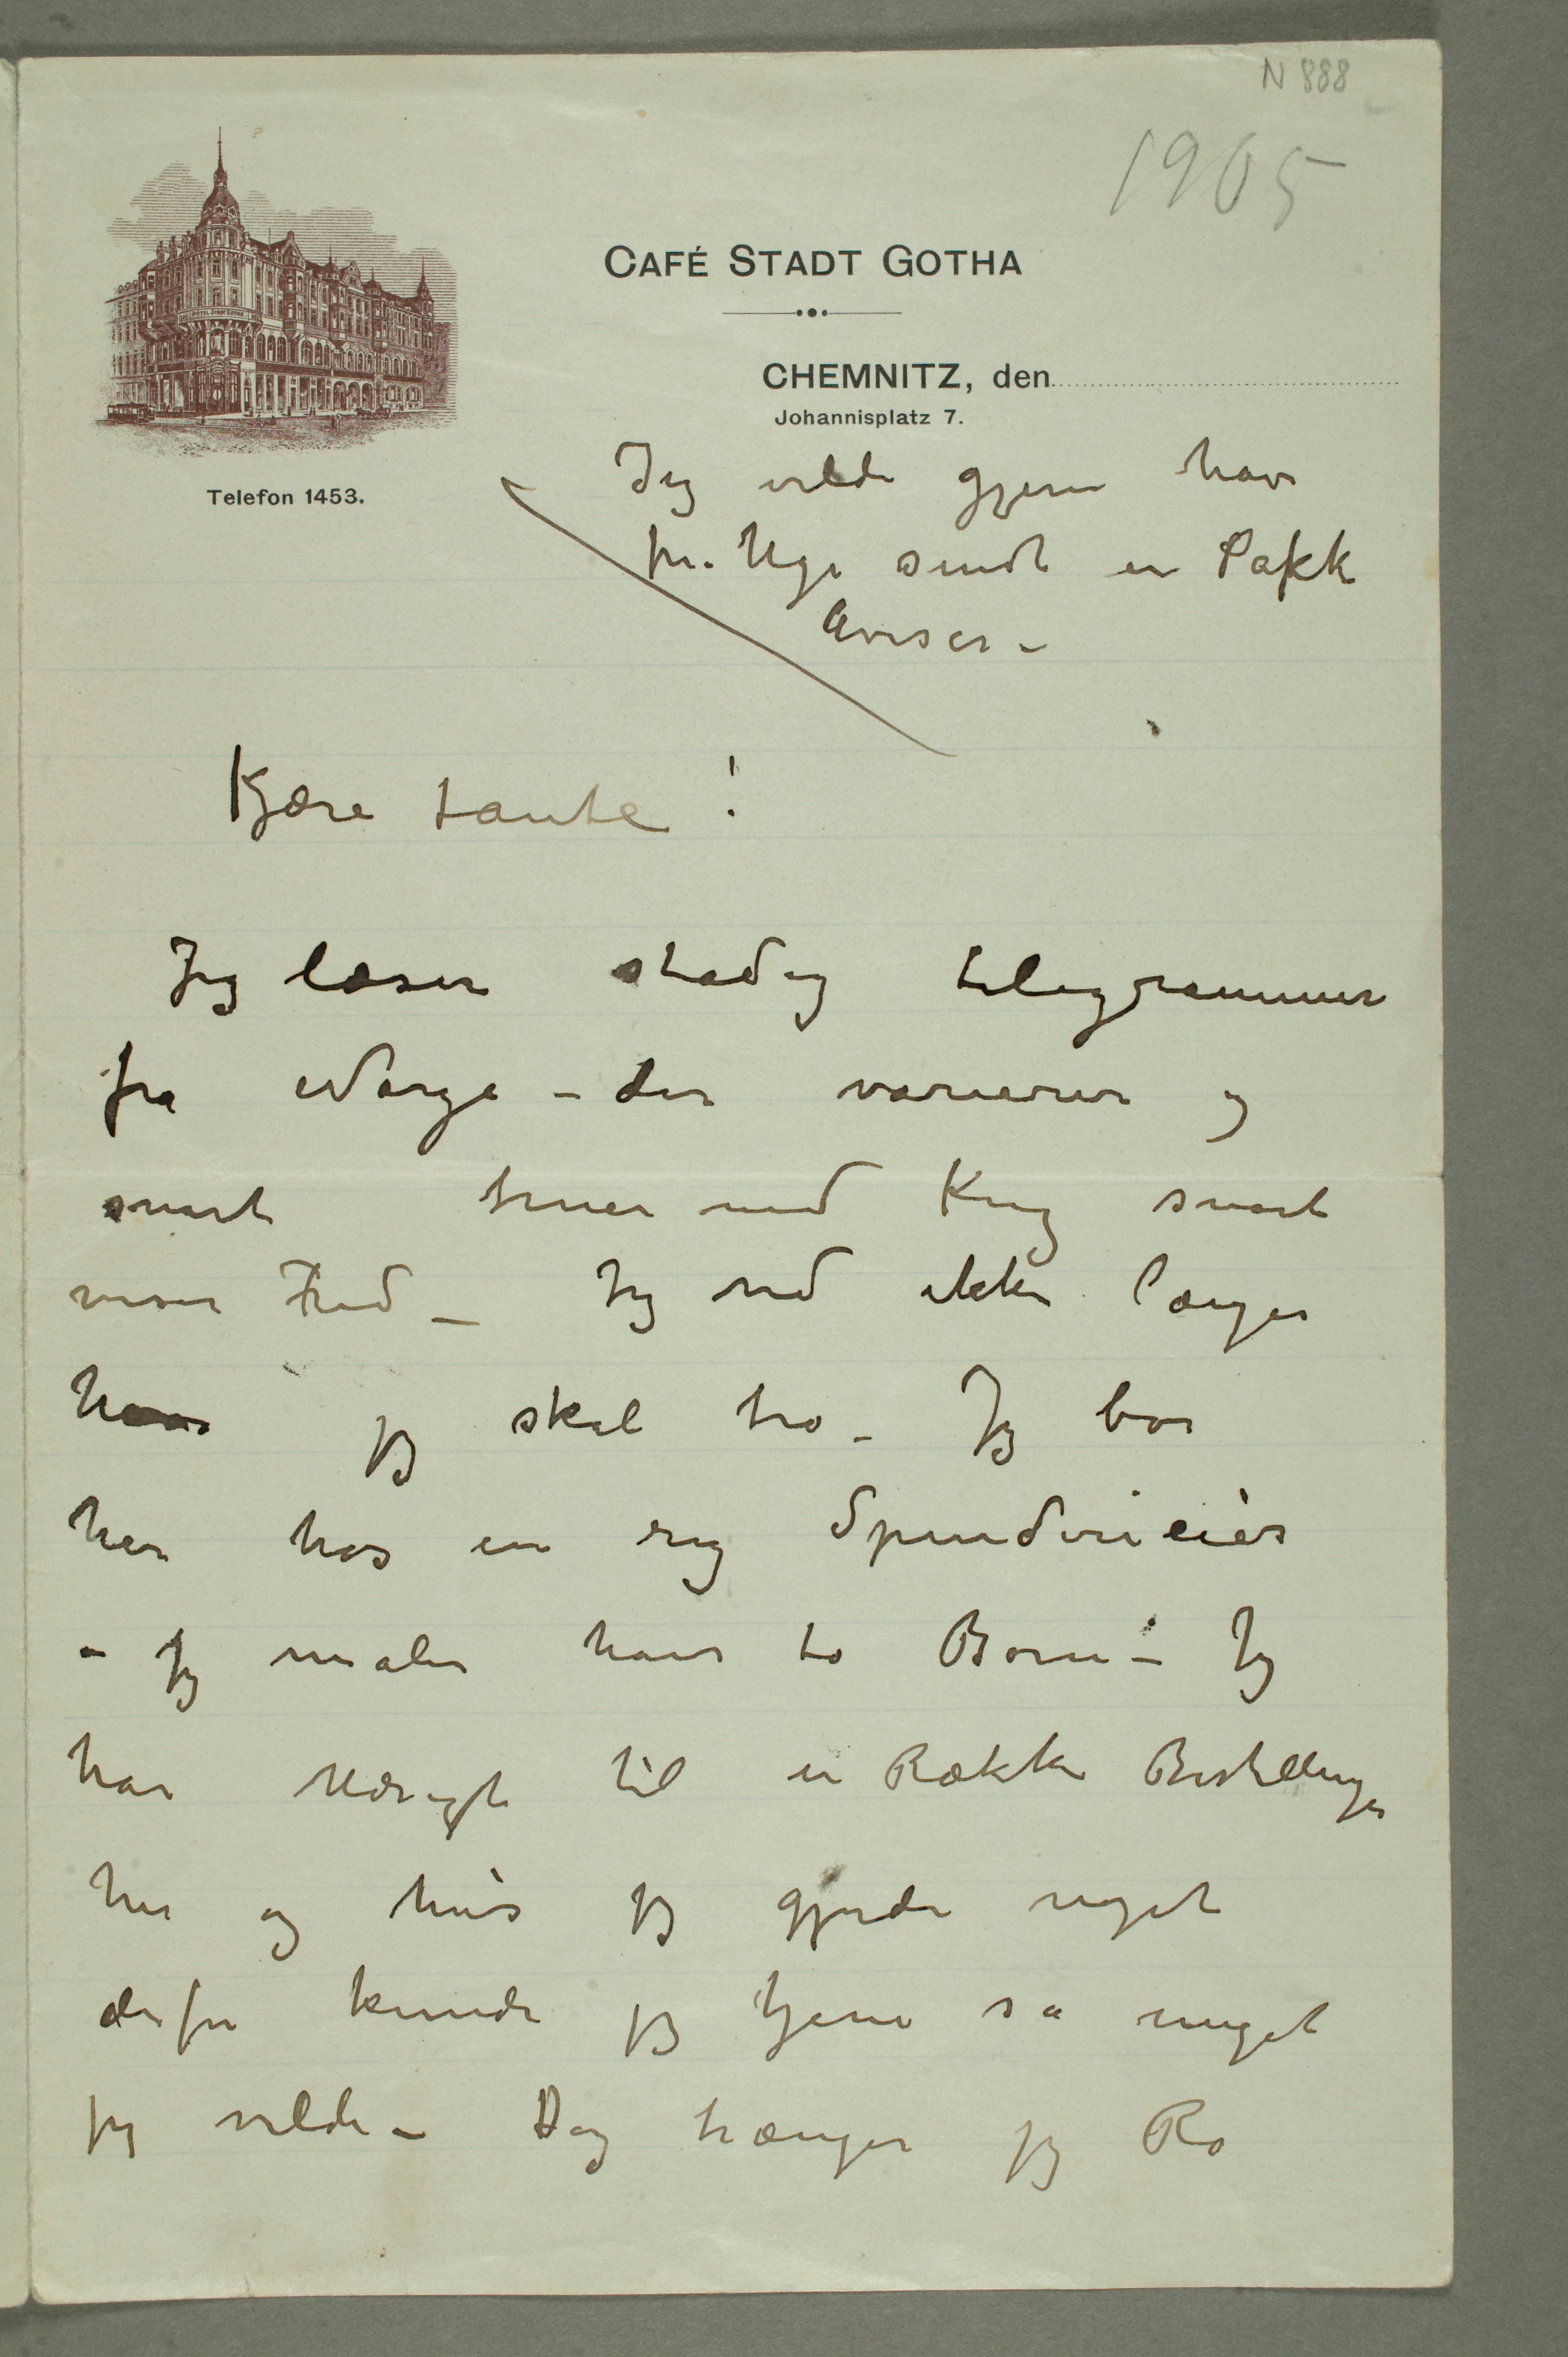 N 888
1905
CAFÉ STADT GOTHA
CHEMNITZ, den
Johannisplatz 7.
HOTEL STADT GOTHA
Telefon 1453.
Jeg vilde gjerne have
pr. Uge sendt en Pakke
Aviser –
Kjære tante!
Jeg læser stadig telegrammer
fra Norge – der varierer og
snart truer med Krig snart
viser Fred – Jeg ved ikke længer
hvad jeg skal tro – Jeg bor
her hos en rig Spinderieier
– Jeg maler hans to Børn – Jeg
har Udsigt til en Række Bestillinger
her og hvis jeg gjorde noget
derfor kunde jeg tjene så meget
jeg vilde – Dog trænger jeg Ro